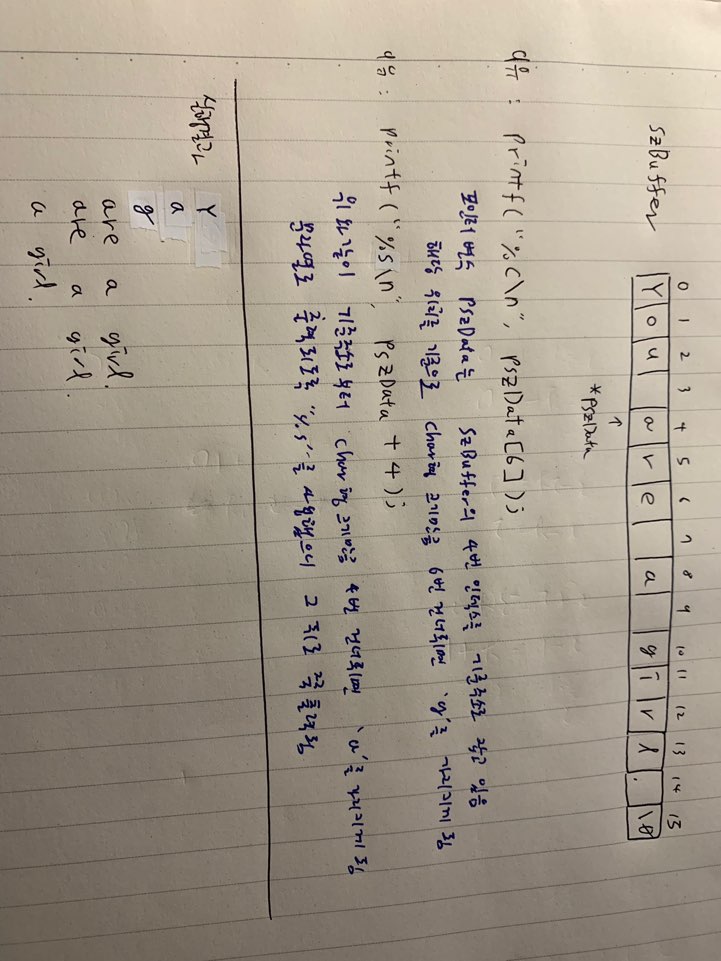 0 1 2 3 4 5 6 7 8 9 10 11 12 13 14 15
szBuffer Y o u a r e a g i r l . \0
↑
*pszData
이유 : printf("%c\n", pszData[6]);
포인터 변수 pszData는 szBuffer의 4번 인덱스를 기준주소로 잡고 있음
해당 위치를 기준으로 char형 크기만큼 6번 건너뛰면 'g'를 가리키게 됨
이유 : printf("%s\n", pszData + 4);
위와 같이 기준주소로부터 char형 크기만큼 4번 건너뛰면 'a'를 가리키게 됨
문자열로 출력되도록 "%s"를 사용했으니 그 뒤로 쭉 출력됨
실행결과 Y
a
g
are a girl.
are a girl.
a girl.